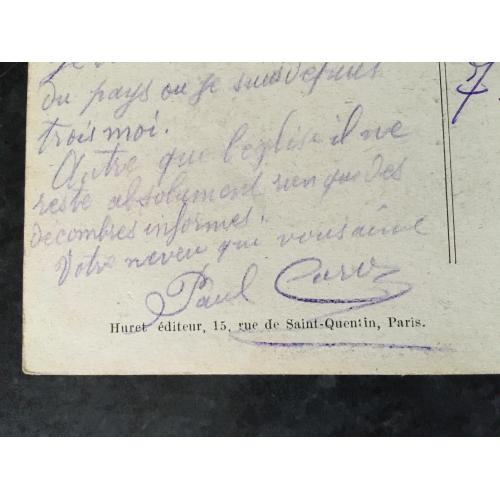 du pays ou je suis depuis
trois moi.
Autre que l'église il ne
reste absolument rien que des
décombres informes.
Votre neveu qui vous aime
Paul
7
Huret éditeur, 15, rue de Saint-Quentin, Paris.